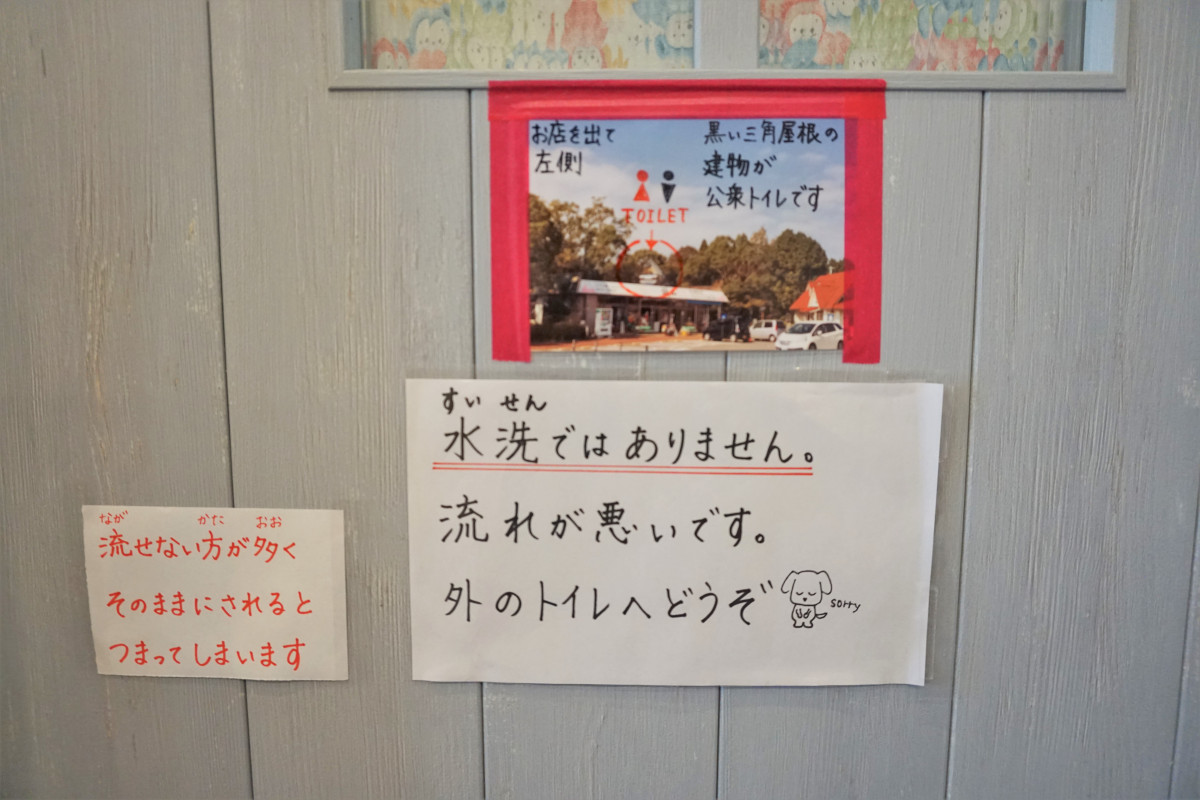 お店を出て
左側
黒い三角屋根の
建物が
公衆トイレです
TOILET
すい せん
水洗ではありません。
流れが悪いです。
外のトイレへどうぞ
sorry
なが かた おお
流せない方が多く
そのままにされると
つまってしまいます